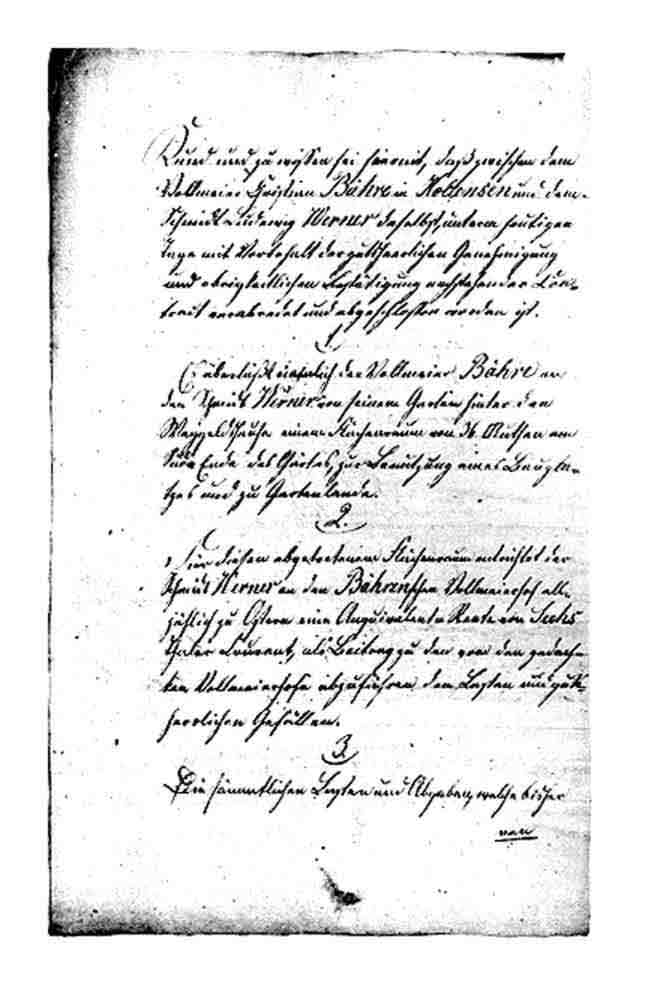 Kund und zu wissen sei hiermit, daß zwischen dem
Vollmeier Christian Bähre in Holtensen und dem
Schmidt Ludewig Werner daselbst, unterm heutigen
Tage mit Vorbehalt der gutsherrlichen Genehmigung
und obrigkeitlichen Bestätigung nachstehender Con-
tract verabredet und abgeschlossen worden ist.
1.
Es überläßt nämlich der Vollmeier Bähre an
den Schmidt Werner von seinem Garten hinter den
einen Flächenraum von 36 Ruthen am
Ende des Gartes, zur Benutzung eines Baupla-
tzes und zu Gartenlande.
2.
Für diesen abgetretenen Flächenraum entrichtet der
Schmidt Werner an den Bährenschen Vollmeierhof all-
jählich zu Ostern eine Aequivalente Rente von Sechs
Thaler Courant, als Beitrag zu den von den gedach-
ten Vollmeierhofe abzuführen den Lasten und guts-
herrlichen Gefällen.
3.
Die sämmtlichen Lasten und Abgaben, welche bisher
von